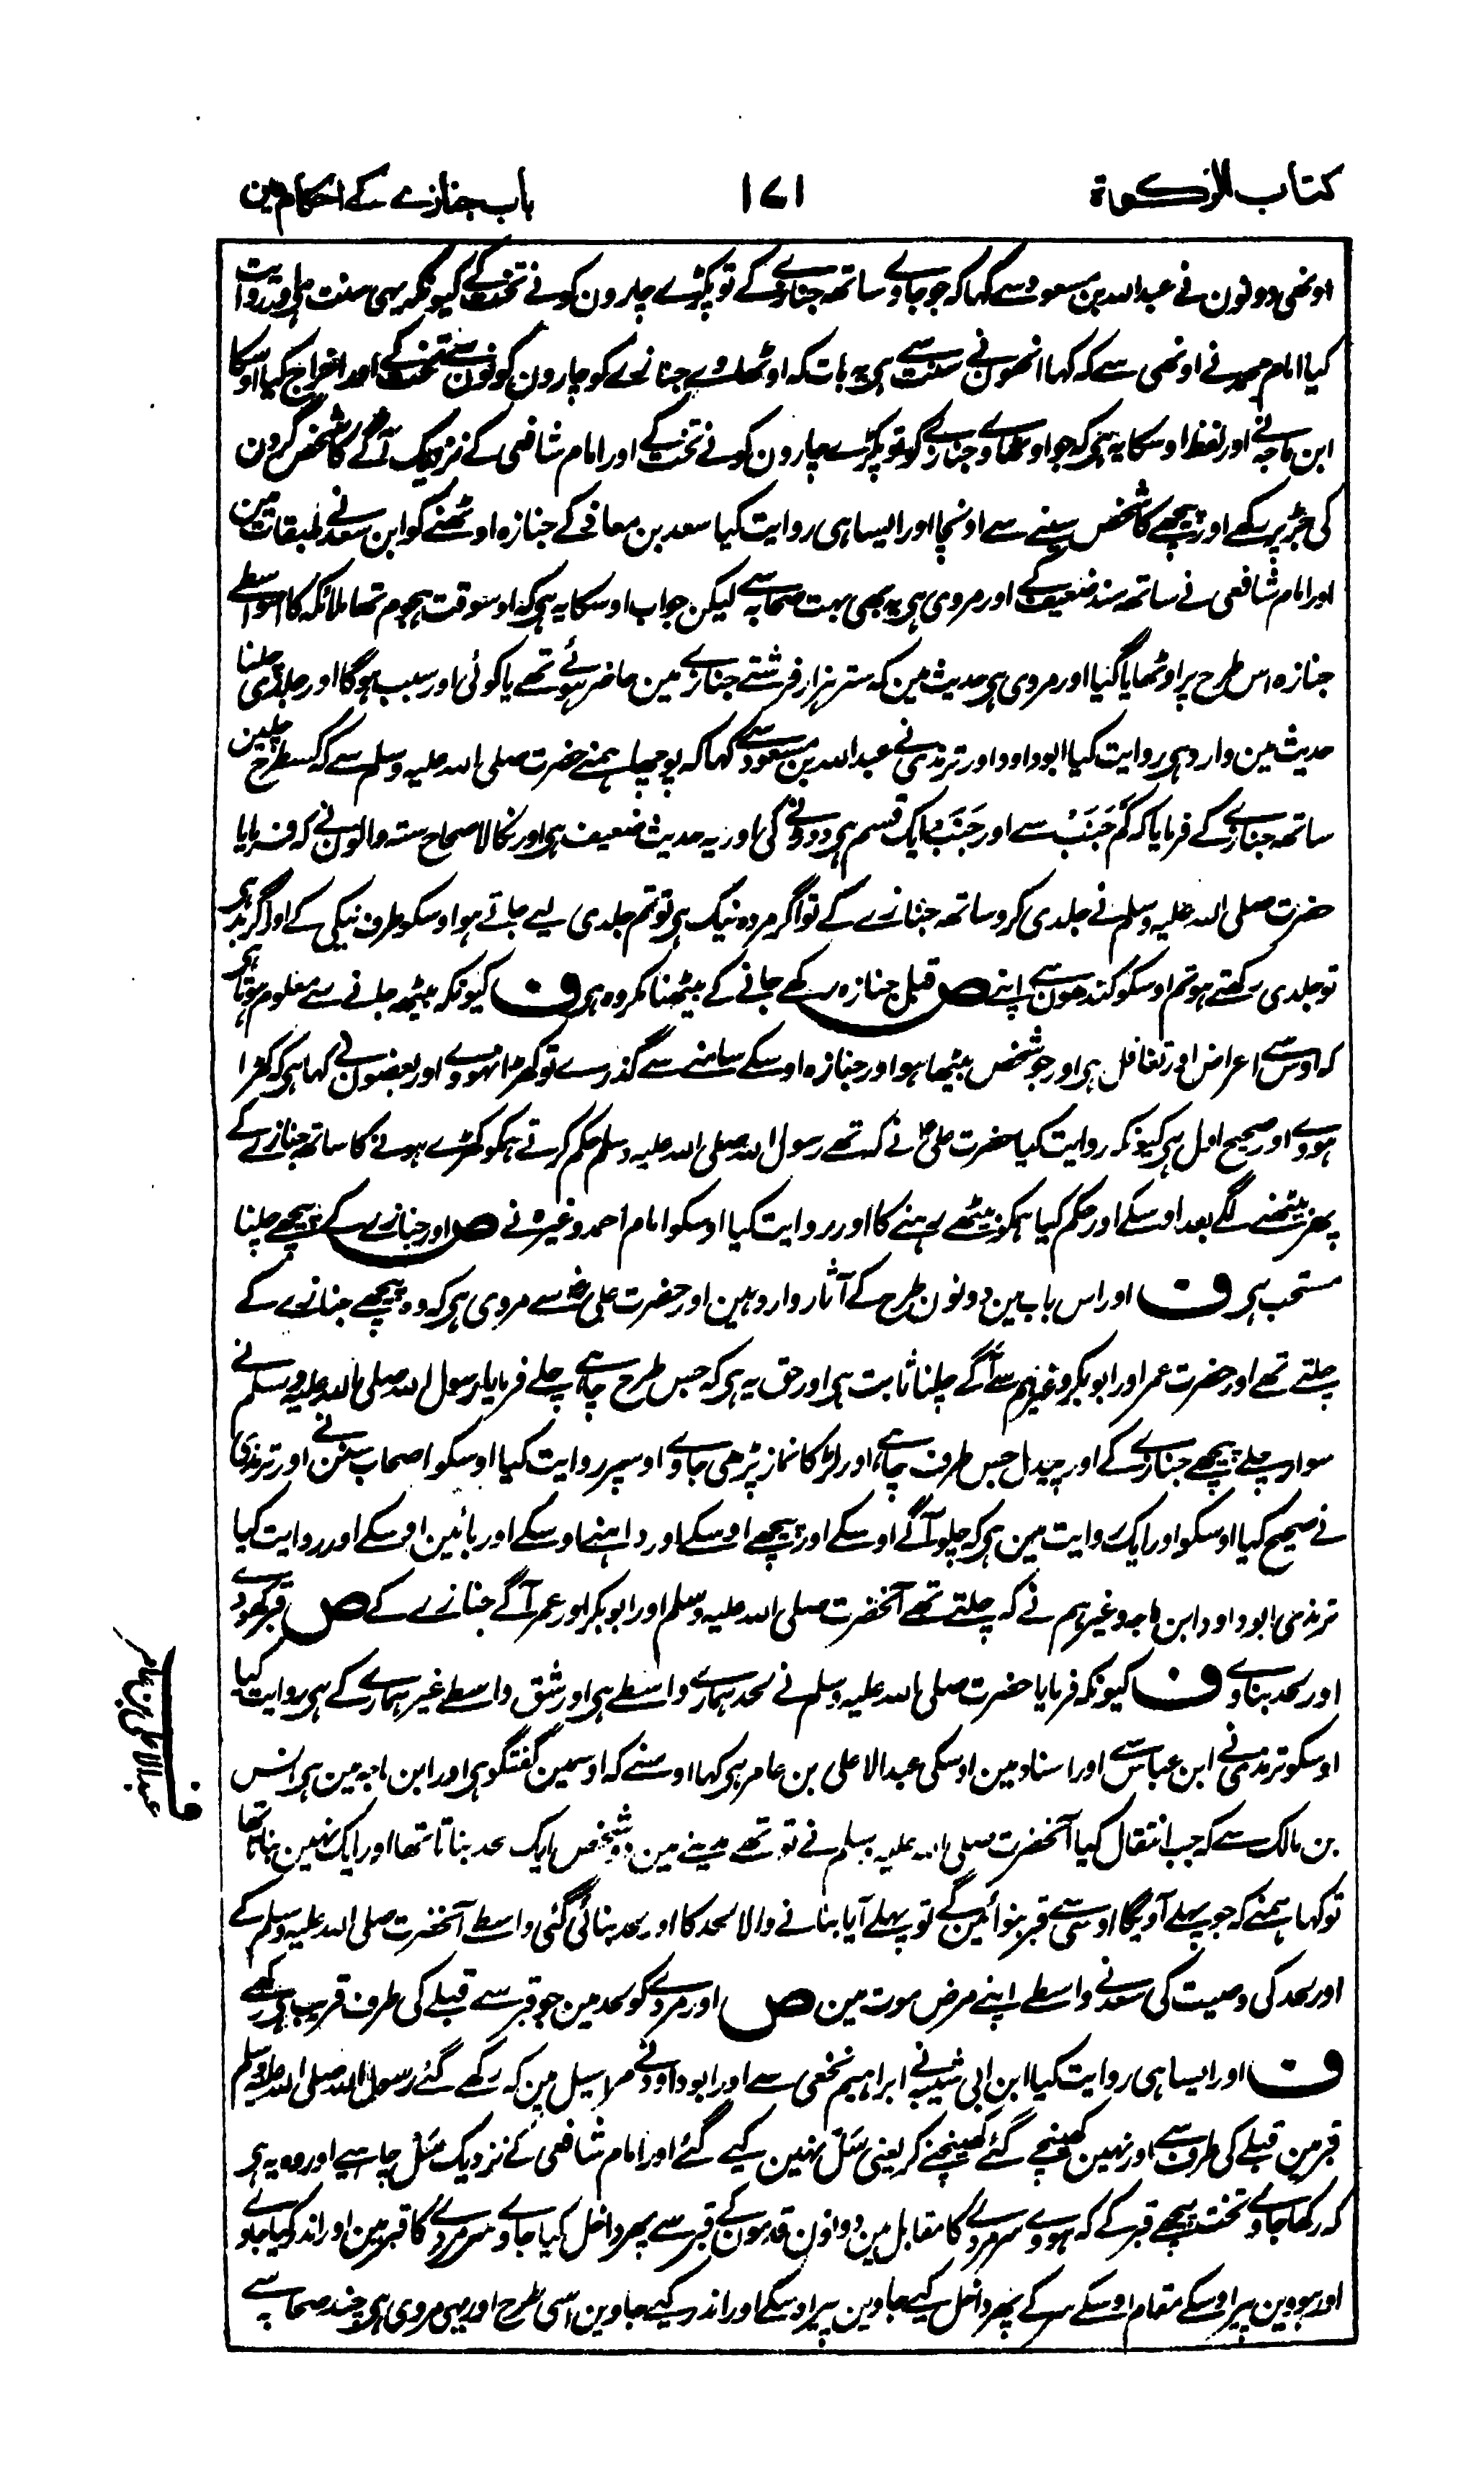 کتاب الزکوٰۃ
۱۷۱
باب جنازے کے احکام مین
اونھی دونون نے عبد اللہ بن مسعود سے کہا کہ جو جاوے ساتھ جنازے کے تو پکڑے چارون کونے تختے کے کیونکہ یہی سنت ہی اور روایت
کیا امام محمد نے اونھی سے کہ کہا انھون نے سنت سے ہی یہ بات کہ اوٹھاوے جنازے کو چارون کونون سے تختے کے اور اخراج کیا اوسکا
ابن ماجہ نے اور لفظ اوسکا یہ ہی کہ جو اوٹھاوے جنازے کو تو پکڑے چارون کونے تخت کے اور امام شافعی کے نزدیک آگے کا شخص گردن
کی جڑ پر رکھے اور پیچھے کا شخص سینے سے اونچا اور ایسا ہی روایت کیا سعد بن معاذ کے جنازہ اوٹھنے کو ابن سعد نے طبقات مین
اور امام شافعی نے ساتھ سند ضعیف کے اور مروی ہی یہ بھی بہت صحابہ سے لیکن جواب اوسکا یہ ہی کہ اوسوقت ہجوم تھا ملائکہ کا اسواسطے
جنازہ اس طرح پر اوٹھایا گیا اور مروی ہی حدیث مین کہ ستر ہزار فرشتے جنازے مین حاضر ہوئے تھے یا کوئی اور سبب ہوگا اور جلدی چلنا
حدیث مین وارد ہی روایت کیا ابوداود اور ترمذی نے عبد اللہ بن مسعود سے کہا کہ پوچھا ہمنے حضرت صلی اللہ علیہ وسلم سے کہ کسطرح چلین
ساتھ جنازے کے فرمایا کہ کم خَبَبْ سے اور خَبَبْ ایک قسم ہی دوڑنے کی اور یہ حدیث ضعیف ہی اور نکالا صحاح ستہ والون نے کہ فرمایا
حضرت صلی اللہ علیہ وسلم نے جلدی کرو ساتھ جنازے کے تو اگر مردہ نیک ہی تو تم جلدی لیے جاتے ہو اوسکو طرف نیکی کے اور اگر بد ہی
تو جلدی رکھتے ہو تم اوسکو کندھون سے اپنے ص قبل جنازہ رکھے جانے کے بیٹھنا مکروہ ہی ف کیونکہ بیٹھ جانے سے معلوم ہوتا ہی
کہ اوس سے اعراض اور تغافل ہی اور جو شخص بیٹھا ہو اور جنازہ اوسکے سامنے سے گذرے تو کھڑا نہووے اور بعضون نے کہا ہی کہ کھڑا
ہووے اور صحیح اول ہی کیونکہ روایت کیا حضرت علیؓ نے کہ تھے رسول اللہ صلی اللہ علیہ وسلم حکم کرتے ہمکو کھڑے ہونے کا ساتھ جنازے کے
پھر بیٹھنے لگے بعد اوسکے اور حکم کیا ہمکو بیٹھے رہنے کا اور روایت کیا اوسکو امام احمد وغیرہ نے ص اور جنازے کے پیچھے چلنا
مستحب ہی ف اور اس باب مین دونون طرح کے آثار وارد ہین اور حضرت علیؓ سے مروی ہی کہ وہ پیچھے جنازے کے
چلتے تھے اور حضرت عمر اور ابوبکر وغیرہم سے آگے چلنا ثابت ہی اور حق یہ ہی کہ جس طرح چاہے چلے فرمایا رسول اللہ صلی اللہ علیہ وسلم نے
سوار چلے پیچھے جنازے کے اور پیدل جس طرف چاہے اور لڑکا نماز پڑھی جاوے اوسپر روایت کیا اوسکو اصحاب سنن نے اور ترمذی
نے صحیح کہا اوسکو اور ایک روایت مین ہی کہ چلو آگے اوسکے اور پیچھے اوسکے اور داہنے اوسکے اور بائین اوسکے اور روایت کیا
ترمذی ابوداود ابن ماجہ وغیرہم نے کہ چلتے تھے آنحضرت صلی اللہ علیہ وسلم اور ابوبکر اور عمر آگے جنازے کے ص قبر کھودے
اور لحد بناوے ف کیونکہ فرمایا حضرت صلی اللہ علیہ وسلم نے لحد ہمارے واسطے ہی اور شق واسطے غیر ہمارے کے ہی روایت کیا
اوسکو ترمذی نے ابن عباس سے اور اسناد مین اوسکی عبد الاعلی بن عامر ہی کہا اوسنے کہ اوسمین گفتگو ہی اور ابن ماجہ مین ہی انس
بن مالک سے کہ جب انتقال کیا آنحضرت صلی اللہ علیہ وسلم نے تو تھے مدینے مین دو شخص ایک لحد بناتا تھا اور ایک نہین بناتا تھا
تو کہا ہمنے کہ جو پہلے آویگا اوسی سے قبر بنوائین گے تو پہلے آیا بنانے والا لحد کا اور لحد بنائی گئی واسطے آنحضرت صلی اللہ علیہ وسلم کے
اور لحد کی وصیت کی سعد نے واسطے اپنے مرض موت مین ص اور مردے کو لحد مین جو قبر سے قبلے کی طرف قریب ہی رکھے
ف اور ایسا ہی روایت کیا ابن ابی شیبہ نے ابراہیم نخعی سے اور ابوداود نے مراسیل مین کہ رکھے گئے رسول اللہ صلی اللہ علیہ وسلم
قبر مین قبلے کی طرف سے اور نہین کھینچے گئے کھینچنے کر یعنی سَل نہین کیے گئے اور امام شافعی کے نزدیک سَل چاہیے اور وہ یہ ہی
کہ رکھا جاوے تخت پیچھے قبر کے کہ ہووے سر مردے کا مقابل مین دونون قدمون کے قبر سے پھر داخل کیا جاوے سر مردے کا قبر مین اور اندر کیا جاوے
اور ہووین پیر اوسکے مقام اوسکے سر کے پھر داخل کیے جاوین پیر اوسکے اور اندر کیے جاوین اسی طرح اور یہی مروی ہی چند صحابہ سے
ف
عبد الاعلی بن عامر